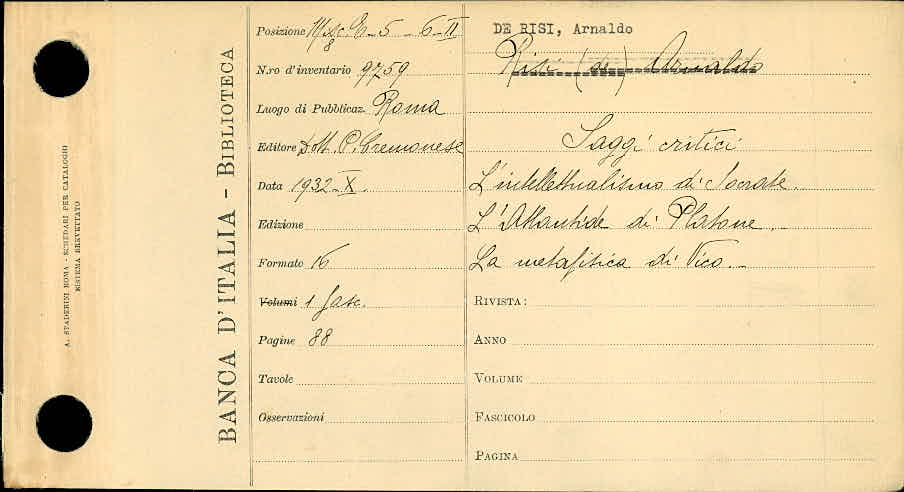 A. STADERINI ROMA - SCHEDARI PER CATALOGHI
SISTEMA BREVETTATO
BANCA D'ITALIA - BIBLIOTECA
Posizione 5 - 6 - II
8
N.ro d'inventario 9759
Luogo di Pubblicaz. Roma
Editore Dott. P. Cremonese
Data 1932-X.
Edizione
Formato 16
Volumi 1 fasc.
Pagine 88
Tavole
Osservazioni
DE RISI, Arnaldo
Risi (de) Arnaldo
Saggi critici
L'intellettualismo di Socrate.
L'Atlantide di Platone. -
La metafisica di Vico. -
RIVISTA:
ANNO
VOLUME
FASCICOLO
PAGINA